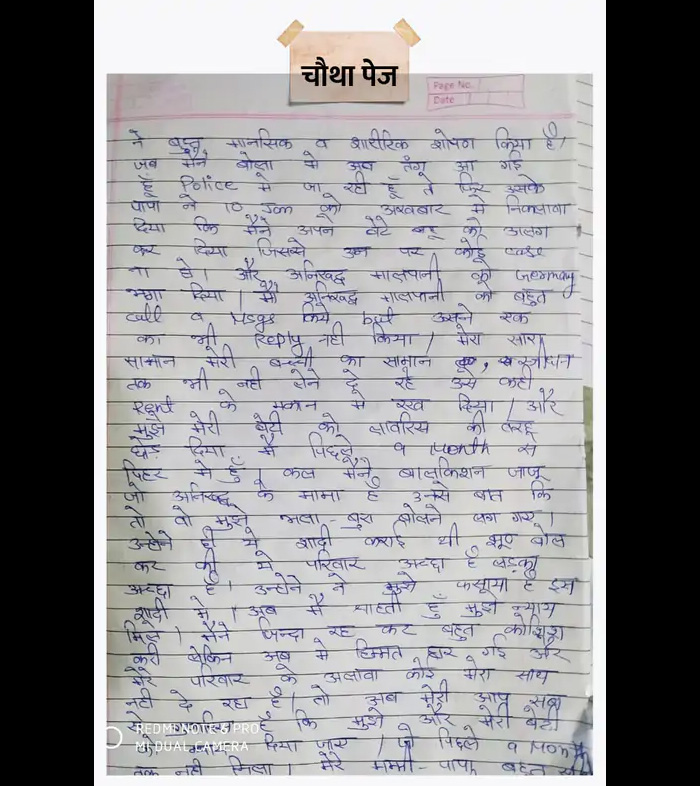 चौथा पेज
Page No.
Date
ने बहुत मानसिक व शारीरिक शोषण किया है।
जब मैंने बोला मे अब तंग आ गई
हूँ Police मे जा रही हूँ तो फिर उसके
पापा ने 10 Jan को अखबार मे निकलावा
दिया कि मैंने अपने बेटे बहू को अलग
कर दिया जिससे उन पर कोई case
ना हो। और अनिरुद्ध मालपानी को Germany
भगा दिया। मैंने अनिरुद्ध मालपानी को बहुत
call व Msgs किये but उसने एक
का भी Reply नही किया। मेरा सारा
सामान मेरी बच्ची का सामान स्त्रीधन
तक भी नही लेने दे रहे उसे कही
Rent के मकान मे रख दिया। और
मुझे मेरी बेटी को लावारिस की तरह
छोड़ दिया मैं पिछले 9 Month से
पिहर मे हूँ। कल मैंने बालकिशन जाजू
जो अनिरुद्ध के मामा है उनसे बात कि
तो वो मुझे भला-बुरा बोलने लग गए।
उन्होने ही ये शादी कराई थी झूठ बोल
कर की ये परिवार अच्छा है लड़का
अच्छा है। उन्होने ने मुझे फसाया है इस
शादी मे। अब मैं चाहती हूँ मुझे न्याय
मिले। मैंने जिन्दा रह कर बहुत कोशिश
करी लेकिन अब मे हिम्मत हार गई और
मेरे परिवार के अलावा कोई मेरा साथ
नही दे रहा है। तो अब मेरी आप सब
से है कि मुझे और मेरी बेटी
को दिया जाए। जो पिछले 9 Month
तक नही मिला। मेरे मम्मी-पापा बहुत
REDMI NOTE 6 PRO
MI DUAL CAMERA